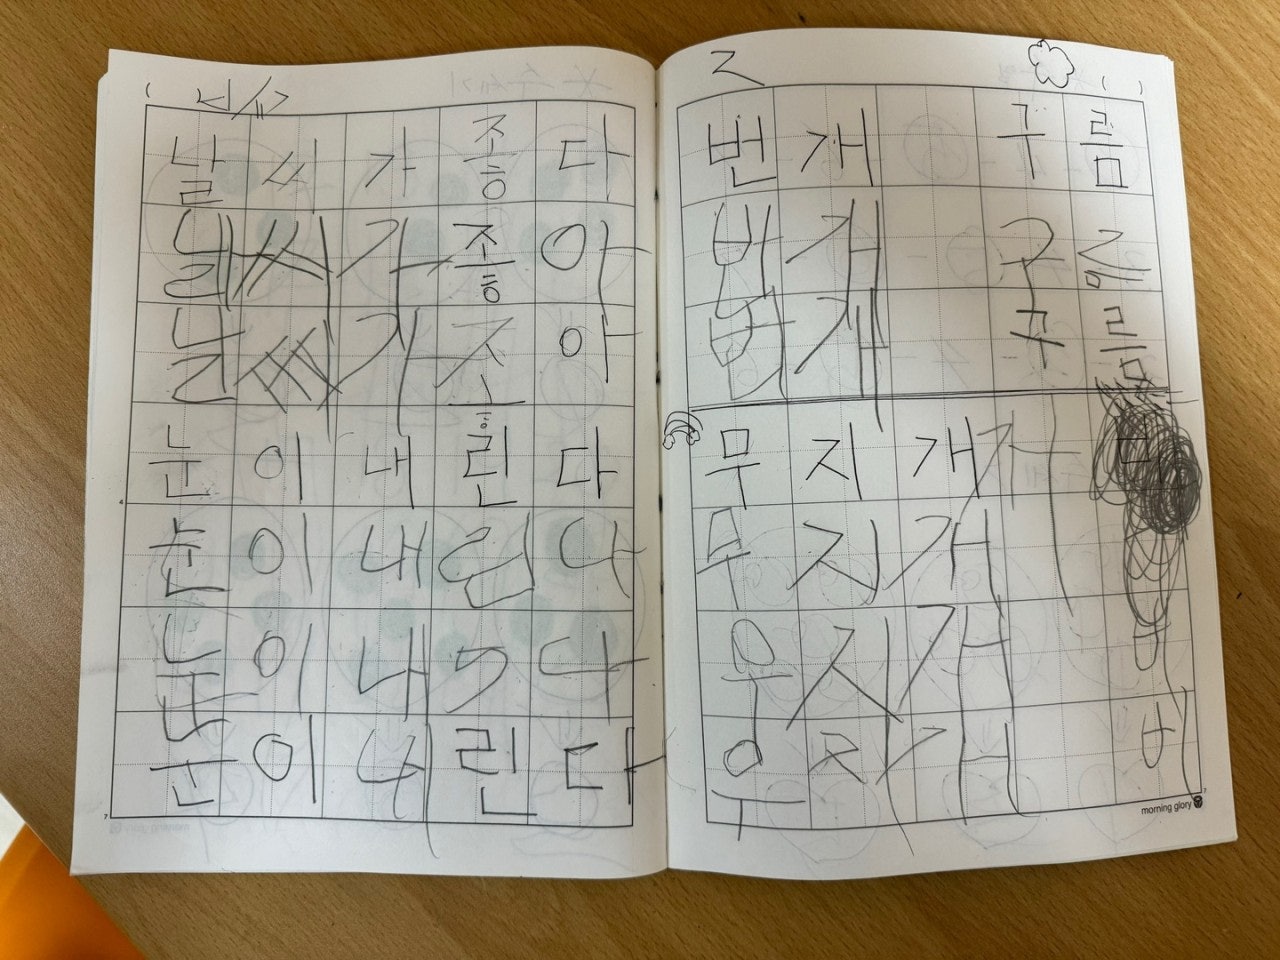 날씨가 좋다
날씨가 좋아
날씨가 좋아
눈이 내린다
눈이 내린다
눈이 내
눈이 린다
번개 구름
번개 구름
번개 구름
무지개
무지개
무지개
지개
morning glory